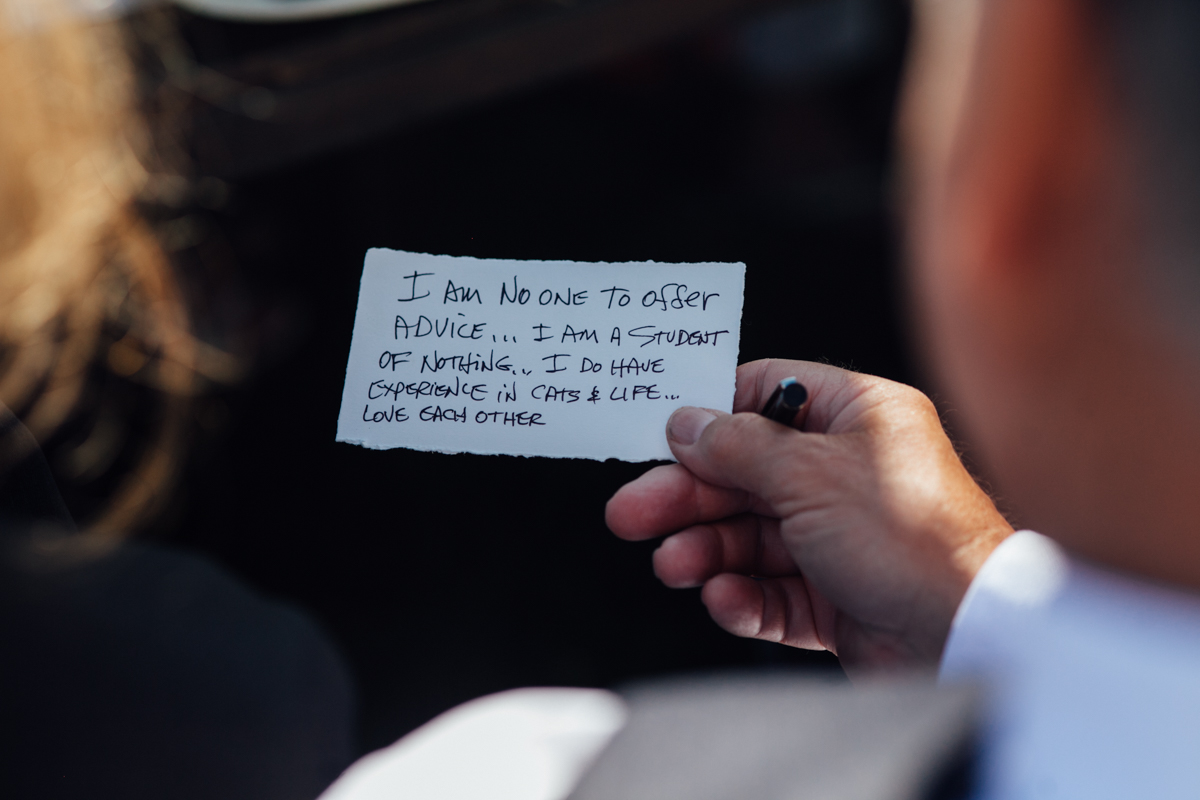 I AM NO ONE TO OffER
ADVICE... I AM A STUDENT
OF NOTHING... I DO HAVE
EXPERIENCE IN CATS & LIFE...
LOVE EACH OTHER